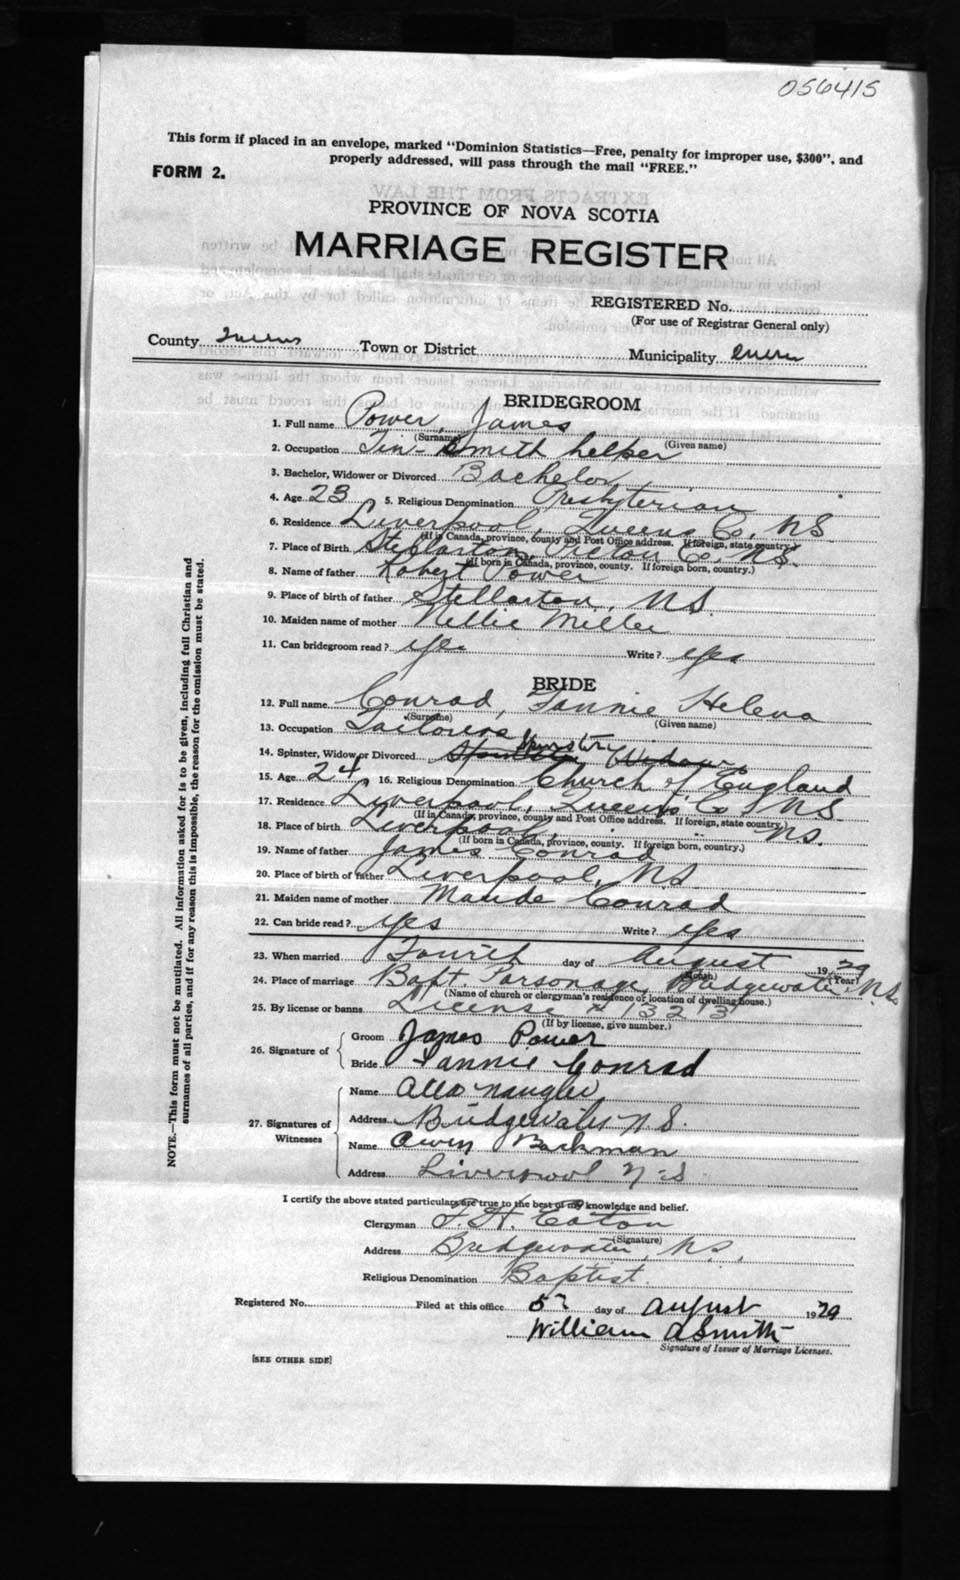 056415
This form if placed in an envelope, marked "Dominion Statistics—Free, penalty for improper use, $300", and
properly addressed, will pass through the mail "FREE."
FORM 2.
PROVINCE OF NOVA SCOTIA
MARRIAGE REGISTER
REGISTERED No.
(For use of Registrar General only)
County Queens Town or District Municipality Queens
BRIDEGROOM
1. Full name Power, James
(Surname) (Given name)
2. Occupation Tin-Smith helper
3. Bachelor, Widower or Divorced Bachelor
4. Age 23 5. Religious Denomination Presbyterian
6. Residence Liverpool, Queens Co, NS
(If in Canada, province, county and Post Office address. If foreign, state country.)
7. Place of Birth Stellarton, Pictou Co, N.S.
(If born in Canada, province, county. If foreign born, country.)
8. Name of father Robert Power
9. Place of birth of father Stellarton, N.S.
10. Maiden name of mother Nellie Miller
11. Can bridegroom read? yes Write? yes
BRIDE
12. Full name Conrad, Fannie Helena
(Surname) (Given name)
13. Occupation Tailoress
14. Spinster, Widow or Divorced Spinster
15. Age 24 16. Religious Denomination Church of England
17. Residence Liverpool, Queens Co NS
(If in Canada, province, county and Post Office address. If foreign, state country.)
18. Place of birth Liverpool, " " N.S.
(If born in Canada, province, county. If foreign born, country.)
19. Name of father James Conrad
20. Place of birth of father Liverpool, N.S.
21. Maiden name of mother Maude Conrad
22. Can bride read? yes Write? yes
23. When married Fourth day of August 1929
(Month) (Year)
24. Place of marriage Bapt. Parsonage, Bridgewater, N.S.
(Name of church or clergyman's residence or location of dwelling house.)
25. By license or banns License # 13213
(If by license, give number.)
26. Signature of
Groom James Power
Bride Fannie Conrad
27. Signatures of Witnesses
Name
Address Bridgewater N.S.
Name Bachman
Address Liverpool N.S
I certify the above stated particulars are true to the best of my knowledge and belief.
Clergyman F. H. Eaton
(Signature)
Address Bridgewater, N.S.
Religious Denomination Baptist.
Registered No. Filed at this office 5 day of August 1929
William A Smith
Signature of Issuer of Marriage Licenses.
[SEE OTHER SIDE]
NOTE.—This form must not be mutilated. All information asked for is to be given, including full Christian and
surnames of all parties, and if for any reason this is impossible, the reason for the omission must be stated.